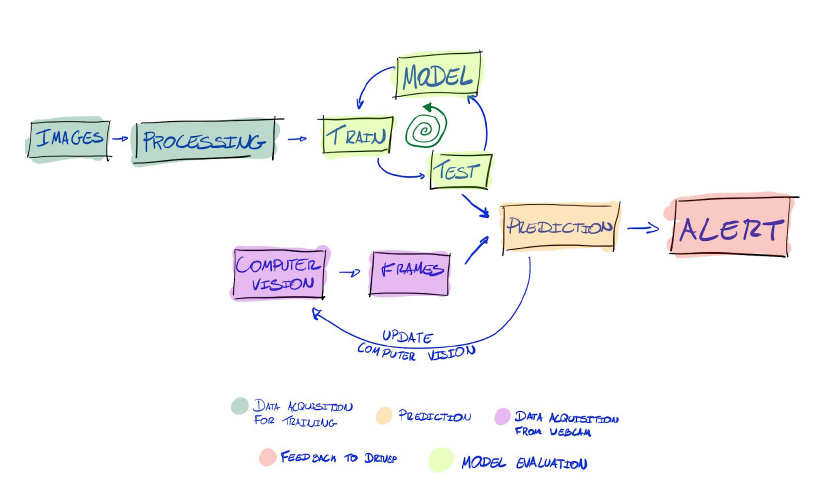 MODEL
IMAGES
PROCESSING
TRAIN
TEST
PREDICTION
ALERT
COMPUTER
VISION
FRAMES
UPDATE
COMPUTER VISION
DATA ACQUISITION
FOR TRAINING
PREDICTION
DATA ACQUISITION
FROM WEBCAM
FEEDBACK TO DRIVER
MODEL EVALUATION